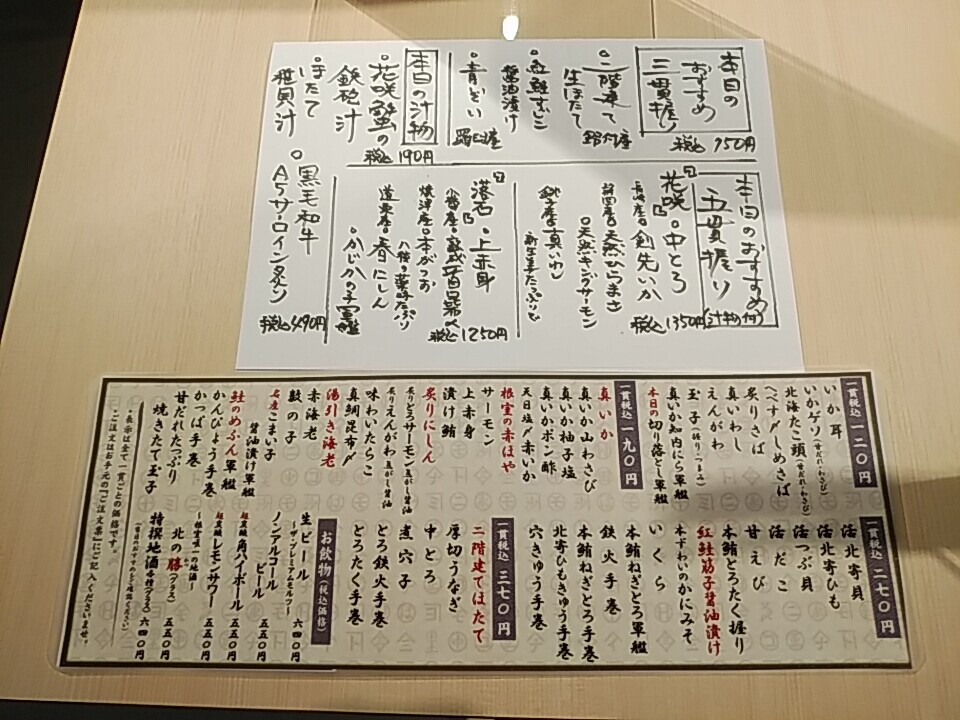 本日の
おすすめ
三貫握り
税込 950円
○二階建て
生ほたて
野付産
○紅鮭すじこ
醤油漬け
○青ぞい
羅臼産
本日の汁物
○花咲蟹の
鉄砲汁
税込 190円
○ほたて
稚貝汁
本日のおすすめ
五貫握り
(汁物付)
税込 1350円
花咲
○中とろ
長崎産○剣先いか
○天然ひらまさ
○天然キングサーモン
銚子産○真いわし
落石
○上赤身
税込 1250円
焼津産○本がつお
道東産○春にしん
○かじかの子軍艦
○黒毛和牛
A5サーロイン炙り
税込 490円
一貫税込 一二〇円
いか耳
いかゲソ(甘だれ・わさび)
北海たこ頭(甘だれ・わさび)
へべす〆しめさば
炙りさば
真いわし
えんがわ
玉子(握り・つまみ)
真いか知内にら軍艦
本日の切り落とし軍艦
一貫税込 一九〇円
真いか
真いか山わさび
真いか柚子塩
真いかポン酢
天日塩〆赤いか
根室の赤ほや
サーモン
上赤身
漬け鮪
炙りにしん
炙りとろサーモン 焦がし醤油
炙りえんがわ 焦がし醤油
味わいたらこ
真鯛昆布〆
湯引き海老
赤海老
数の子
名産こまい子
醤油漬け軍艦
鮭のめふん軍艦
かんぴょう手巻
かっぱ手巻
甘だれたっぷり
焼きたて玉子
・表示は全て一貫ごとの価格です。
・ご注文はお手元の「ご注文票」にご記入くださいませ。
一貫税込 二七〇円
活北寄貝
活北寄ひも
活つぶ貝
活だこ
甘えび
本鮪とろたく握り
紅鮭筋子醤油漬け
本ずわいのかにみそ
いくら
本鮪ねぎとろ軍艦
鉄火手巻
本鮪ねぎとろ手巻
北寄ひもきゅう手巻
穴きゅう手巻
一貫税込 三七〇円
二階建てほたて
厚切うなぎ
中とろ
煮穴子
とろ鉄火手巻
とろたく手巻
お飲物(税込価格)
生ビール
~ザ・プレミアムモルツ~ 六四〇円
ノンアルコール
ビール 五五〇円
超炭酸角ハイボール 五五〇円
超炭酸レモンサワー 五五〇円
~根室唯一の地酒~
北の勝(グラス) 五五〇円
特撰地酒各種(グラス) 六四〇円